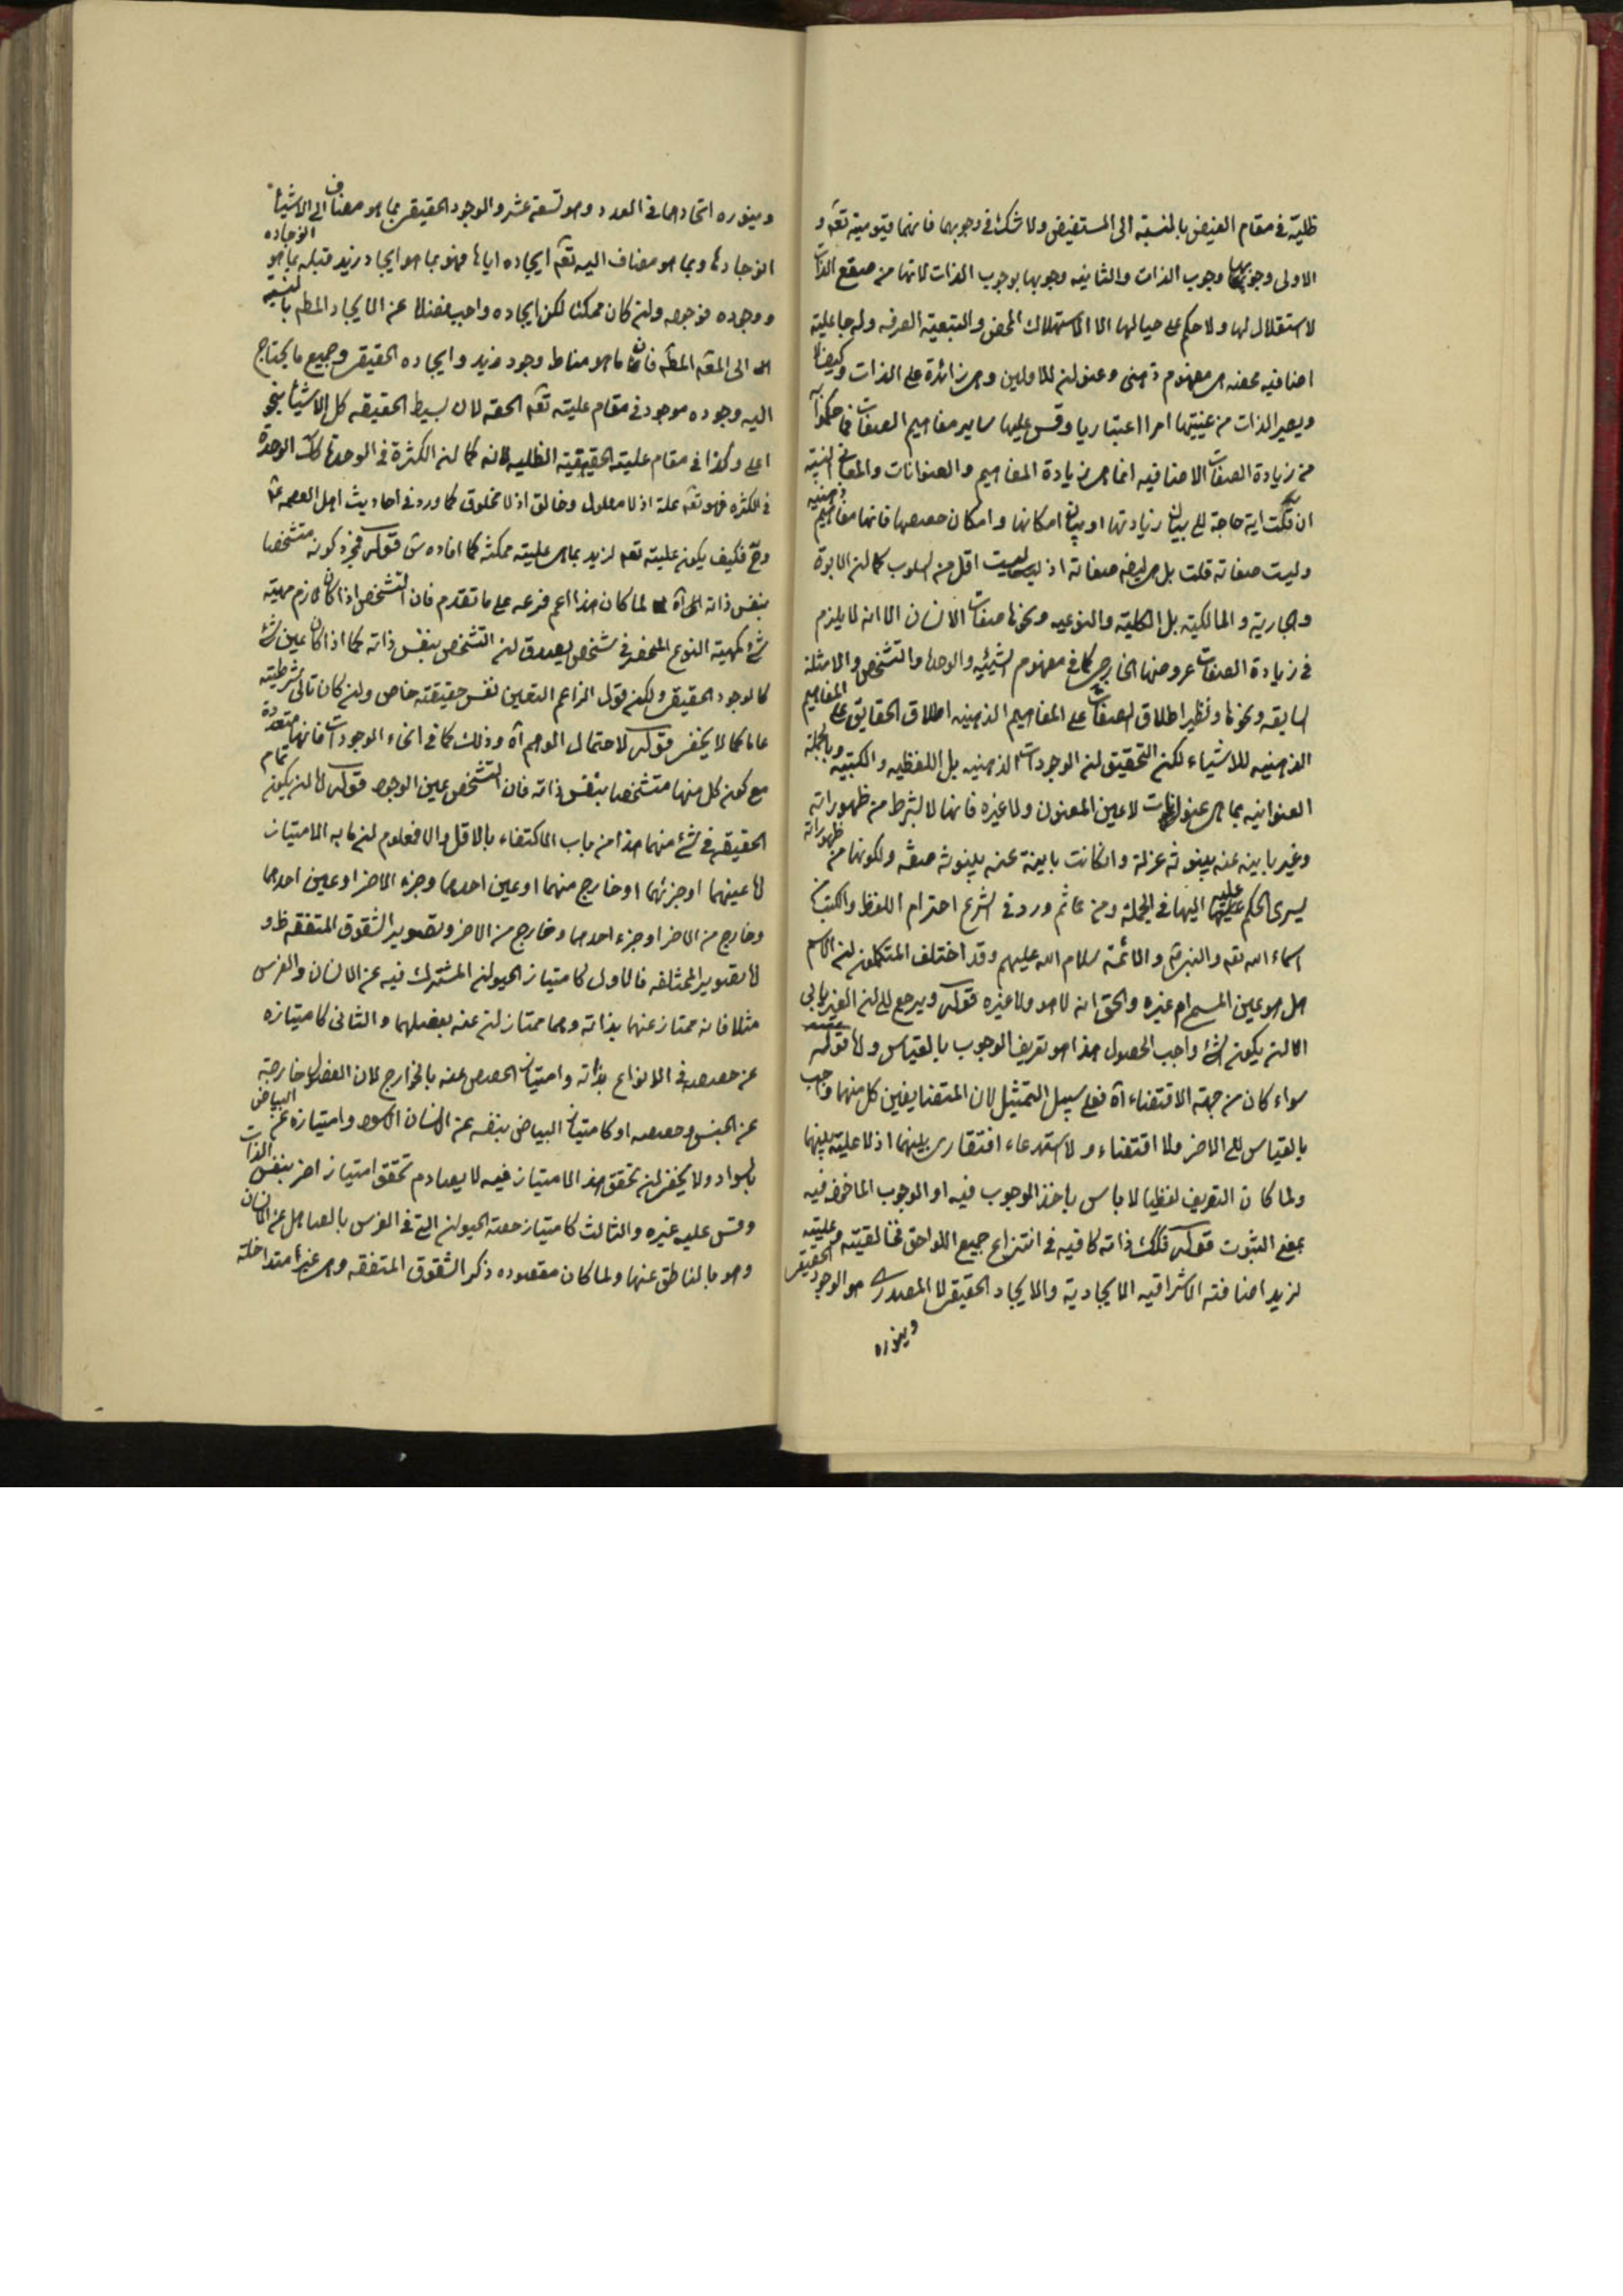 ظلية في مقام الفيض بالنسبة الى المستفيض ولا شك في وجوبهما فانهما قيوميته تعه و
الاولى وجوبها وجوب الذات والثانيه وجوبها بوجوب الذات لانها من صقع الذات
لا استقلال لها ولا حكم على حيالها الا الاستهلاك المحض والتبعية الصرفه وله جاعلية
اضافيه محضه هى مفهوم ذهنى وعنوان للاوليين وهى زائدة على الذات وكيف لا
ويصير الذات من عينيتها امرا اعتباريا وقس عليها ساير مفاهيم الصفات فما حكموا به
من زيادة الصفات الاضافيه انما هى زيادة المفاهيم والعنوانات والمعانى النسبيه
ان قلت اية حاجة الى بيان زيادتها او بيان امكانها وامكان حصصها فانها مفاهيم ذهنيه
وليست صفاته قلت بل هى ايضه صفاته اذ ليست اقل من السلوب كما ان الابوة
والجارية والمالكية بل الكلية والنوعيه ونحوها صفات الانسان الا انه لا يلزم
في زيادة الصفات عروضها الخارجى كما في مفهوم الشيئيه والوحدة والتشخص والامثلة
السابقه ونحوها ونظير اطلاق الصفات على المفاهيم الذهنيه اطلاق الحقايق على المفاهيم
الذهنيه للاشياء لكن التحقيق ان الوجودات الذهنيه بل اللفظيه والكتبيه وبالجملة
العنوانيه بما هى عنوانات لا عين المعنون ولا غيره فانها لا بشرط من ظهوراته
وغير باينه عنه بينونة عزلة وان كانت باينة عنه بينونة صفة ولكونها من ظهوراته
يسرى الحكم عليه اليها في الجملة ومن ثم ورد في الشرع احترام اللفظ والكتب من
اسماء الله تعه والنبى ص والائمة سلام الله عليهم وقد اختلف المتكلمون ان الاسم
هل هو عين المسمى ام غيره والحق انه لا هو ولا غيره قوله ويرجع الى ان الغير يابى
الا ان يكون الشئ واجب الحصول هذا هو تعريف الوجوب بالقياس ولها قوله
سواء كان من جهة الاقتضاء آه فعلى سبيل التمثيل لان المتضايفين كل منهما واجب
بالقياس الى الاخر ولا اقتضاء ولا استدعاء افتقارى بينهما اذ لا علية بينهما
ولما كان التعريف لفظيا لا باس باخذ الوجوب فيه او الوجوب الماخوذ فيه
بمعنى الثبوت قوله فذلك ذاته كافيه في انتزاع جميع اللواحق فخالقيته وعليته
لزيد اضافته الاشراقيه الايجادية والايجاد الحقيقى لا المصدرى هو الوجود الحقيقى
وينوره
وينوره اتحادهما في العدد وهو تسعة عشر والوجود الحقيقى بما هو مضاف الى الاشياء
انوجادها وبما هو مضاف اليه تعه ايجاده اياها فهو بما هو ايجاد زيد قبله بما هو انوجاده
ووجوده فوجوده وان كان ممكنا لكن ايجاده واجب فضلا عن الايجاد المطم بالنسبه
الى المقه المطه فان ما هو مناط وجود زيد وايجاده الحقيقى وجميع ما يحتاج
اليه وجوده موجود في مقام عليته تعه الحقه لان بسيط الحقيقه كل الاشياء بنحو
اعلى وكذا في مقام عليته الحقيقية الظليه لانه كما ان الكثرة في الوحدة كك الوحدة
في الكثره فهو تعه علة اذ لا معلول وخالق اذ لا مخلوق كما ورد في احاديث اهل العصمه ع
وح فكيف يكون عليته تعه لزيد بما هى علية ممكنة كما افاده ش قوله فجز كونه متشخصا
بنفس ذاته الى آه لما كان هذا اعم فرعه على ما تقدم فان التشخص اذا كان لازم مهية
شئ كمهية النوع المنحصر في شخص يصدق ان التشخص بنفس ذاته كما اذا كان عين شئ
كالوجود الحقيقى ولكن قول الزاعم التعين نفس حقيقته خاص وان كان تالى شرطيته
عاما كما لا يخفى قوله لاحتمال الوهم آه وذلك كما في انحاء الوجودات فانها متعددة
مع كون كل منها متشخصا بنفس ذاته فان التشخص عين الوجود قوله لها ان يكون تمام
الحقيقه في شئ منهما هذا من باب الاكتفاء بالاقل والا فمعلوم ان ما به الامتياز
لها عينهما او جزئهما او خارج منهما او عين احدهما وجزء الاخر او عين احدهما
وخارج من الاخر او جزء احدهما وخارج من الاخر وتصوير الشقوق المتفقه ظ و
لها تصوير المختلفه فالاول كامتياز الحيوان المشترك فيه عن الانسان والفرس
مثلا فانه ممتاز عنهما بذاته وهما ممتازان عنه بفصلهما والثانى كامتيازه
عن حصصه في الانواع بذاته وامتياز الحصص عنه بالخوارج لان الفصول خارجة
عن الجنس وحصصه او كامتياز البياض بنفسه عن الانسان الاسود وامتيازه عن البياض
بالسواد ولا يخفى ان تحقق هذا الامتياز فيه لا يصادم تحقق امتياز اخر بنفس الذات
وقس عليه غيره والثالث كامتياز حصة الحيوان التى في الفرس بالصاهل عن الانسان
وهو بالناطق عنها ولما كان مقصوده ذكر الشقوق المتفقه وهى غير متداخلة